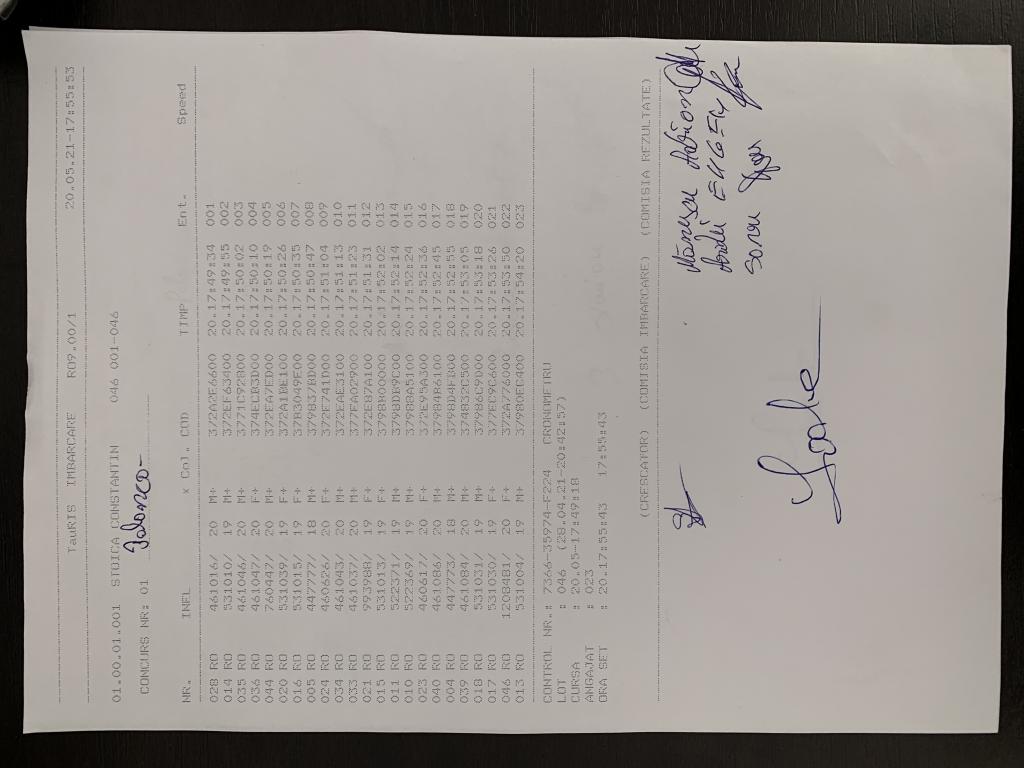 TauRIS IMBARCARE R09.00/1 20.05.21-17:55:53
01.00.01.001 STOICA CONSTANTIN 046 001-046
CONCURS NR: 01
NR. INEL x Col. COD TIMP Ent. Speed
028 RO 461016/ 20 M+ 372A2E6600 20.17:49:34 001
014 RO 531010/ 19 M+ 372EF63400 20.17:49:55 002
035 RO 461046/ 20 M+ 3771C92800 20.17:50:02 003
036 RO 461047/ 20 F+ 374ECB3D00 20.17:50:10 004
044 RO 760447/ 20 M+ 372EA7ED00 20.17:50:19 005
020 RO 531039/ 19 F+ 372A1BE100 20.17:50:26 006
016 RO 531015/ 19 F+ 37B3049E00 20.17:50:35 007
005 RO 447777/ 18 M+ 379837BD00 20.17:50:47 008
024 RO 460626/ 20 F+ 372E741D00 20.17:51:04 009
034 RO 461043/ 20 M+ 372EAE3100 20.17:51:13 010
033 RO 461037/ 20 M+ 377EA02900 20.17:51:23 011
021 RO 993988/ 19 F+ 372E87A100 20.17:51:31 012
015 RO 531013/ 19 F+ 3798B00000 20.17:52:02 013
011 RO 522371/ 19 M+ 3798DB9C00 20.17:52:14 014
010 RO 522269/ 19 M+ 37988A5100 20.17:52:24 015
023 RO 460617/ 20 F+ 372E95A300 20.17:52:36 016
040 RO 461086/ 20 M+ 37984B6100 20.17:52:45 017
004 RO 447773/ 18 M+ 3798D4FB00 20.17:52:55 018
039 RO 461084/ 20 M+ 374832C500 20.17:53:05 019
018 RO 531031/ 19 M+ 37986C9D00 20.17:53:18 020
017 RO 531030/ 19 F+ 377EC9C600 20.17:53:26 021
046 RO 1208481/ 20 F+ 372A776000 20.17:53:50 022
013 RO 531004/ 19 M+ 37980EC400 20.17:54:20 023
CONTROL NR.: 7366-35974-F224 CRONOMETRU
LOT : 046 (28.04.21-20:42:57)
CURSA : 20.05-17:49:18
ANGAJAT : 023
ORA SET : 20.17:55:43 17:55:43
(CRESCATOR) (COMISIA IMBARCARE) (COMISIA REZULTATE)